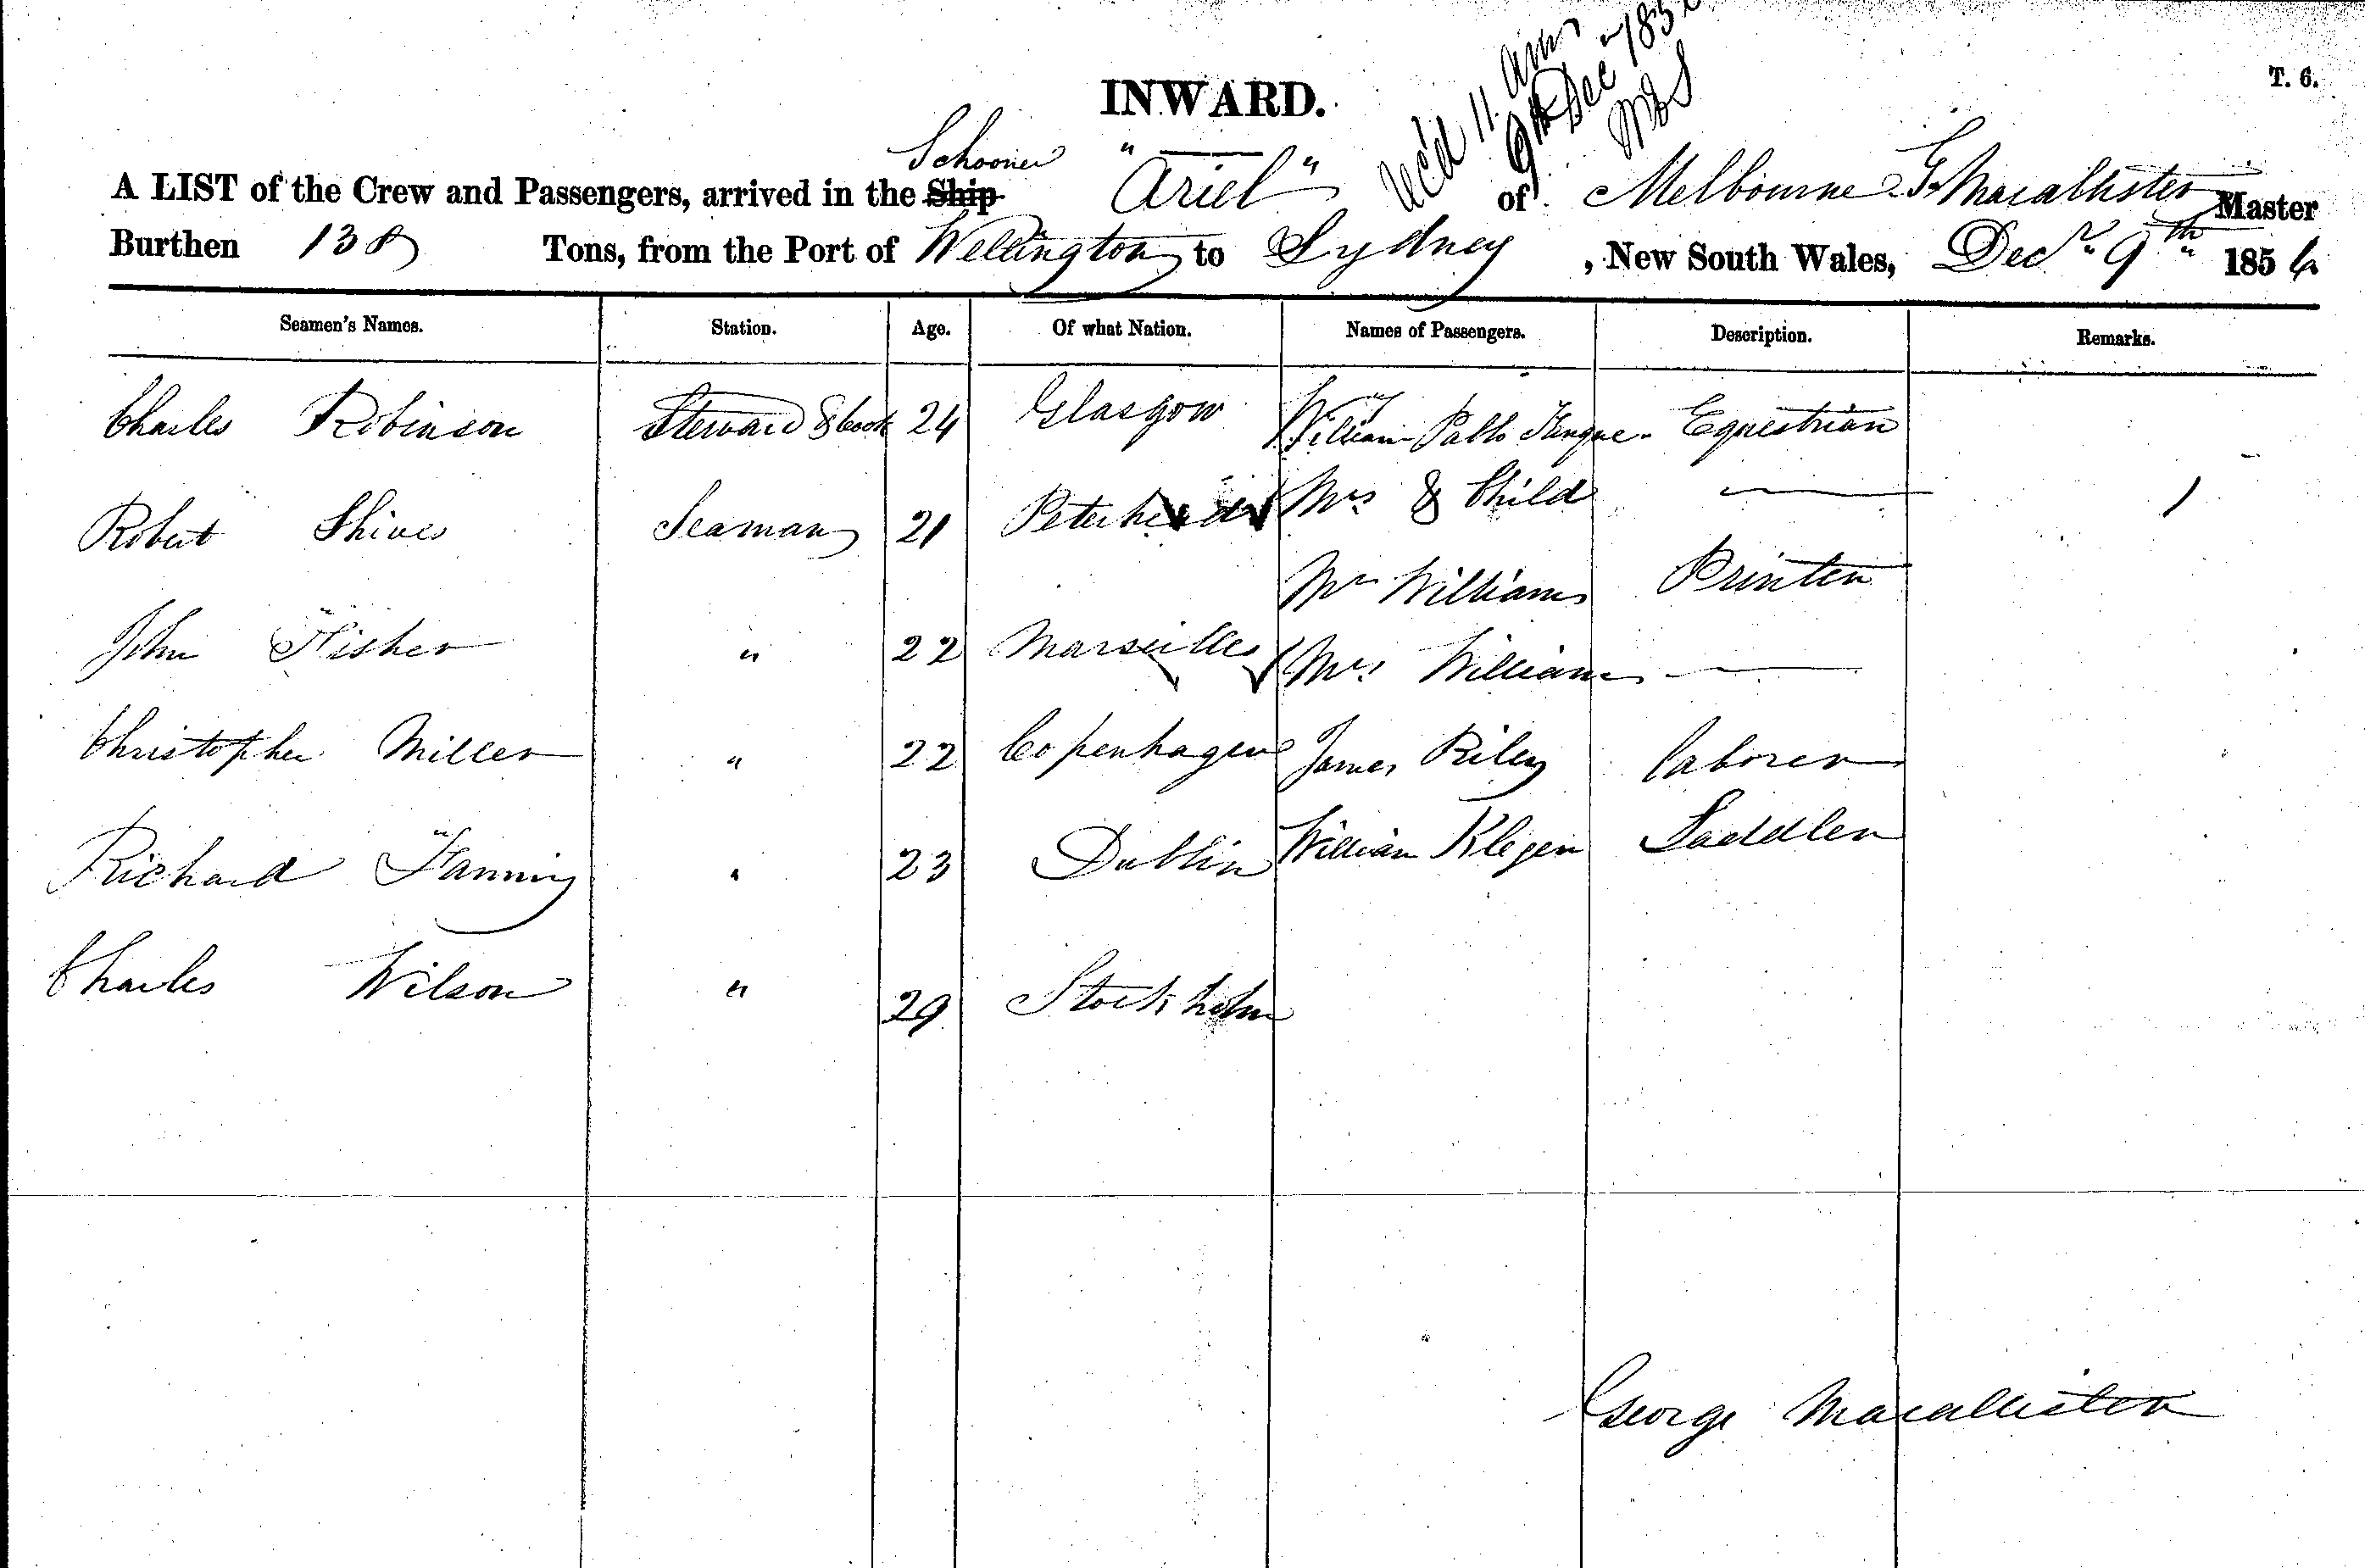 T. 6.
INWARD.
Rec'd 11. am
9th Dec 185
Schooner
A LIST of the Crew and Passengers, arrived in the Ship "Ariel" of Melbourne G. Macallister Master
Burthen 138 Tons, from the Port of Wellington to Sydney, New South Wales, Decr 9th 1856
Seamen's Names. Station. Age. Of what Nation. Names of Passengers. Description. Remarks.
Charles Robinson Steward & Cook 24 Glasgow William Pablo Equestrian
Robert Shives Seaman 21 Peterhead Mrs & Child —
Mr Williams Printer
John Fisher " 22 Marseilles Mrs Williams —
Christopher Miller " 22 Copenhagen James Riley laborer
Richard Fanning " 23 Dublin William Klegen Saddler
Charles Wilson " 29 Stockholm
George Macallister